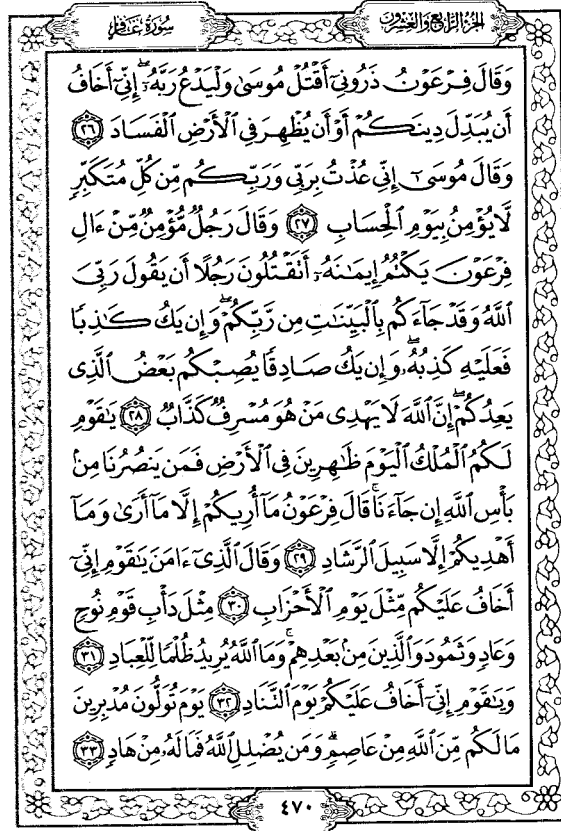 سُورَةُ غَافِلٍ
الجُزْءُ الرَّابِعُ وَالعِشْرُونَ
وَقَالَ فِرْعَوْنُ ذَرُونِىٓ أَقْتُلْ مُوسَىٰ وَلْيَدْعُ رَبَّهُۥٓ ۖ إِنِّىٓ أَخَافُ
أَن يُبَدِّلَ دِينَكُمْ أَوْ أَن يُظْهِرَ فِى ٱلْأَرْضِ ٱلْفَسَادَ ٢٦
وَقَالَ مُوسَىٰٓ إِنِّى عُذْتُ بِرَبِّى وَرَبِّكُم مِّن كُلِّ مُتَكَبِّرٍ
لَّا يُؤْمِنُ بِيَوْمِ ٱلْحِسَابِ ٢٧ وَقَالَ رَجُلٌ مُّؤْمِنٌ مِّنْ ءَالِ
فِرْعَوْنَ يَكْتُمُ إِيمَـٰنَهُۥٓ أَتَقْتُلُونَ رَجُلًا أَن يَقُولَ رَبِّىَ
ٱللَّهُ وَقَدْ جَآءَكُم بِٱلْبَيِّنَـٰتِ مِن رَّبِّكُمْ ۖ وَإِن يَكُ كَـٰذِبًا
فَعَلَيْهِ كَذِبُهُۥ ۖ وَإِن يَكُ صَادِقًا يُصِبْكُم بَعْضُ ٱلَّذِى
يَعِدُكُمْ ۖ إِنَّ ٱللَّهَ لَا يَهْدِى مَنْ هُوَ مُسْرِفٌ كَذَّابٌ ٢٨ يَـٰقَوْمِ
لَكُمُ ٱلْمُلْكُ ٱلْيَوْمَ ظَـٰهِرِينَ فِى ٱلْأَرْضِ فَمَن يَنصُرُنَا مِنۢ
بَأْسِ ٱللَّهِ إِن جَآءَنَا ۚ قَالَ فِرْعَوْنُ مَآ أُرِيكُمْ إِلَّا مَآ أَرَىٰ وَمَآ
أَهْدِيكُمْ إِلَّا سَبِيلَ ٱلرَّشَادِ ٢٩ وَقَالَ ٱلَّذِىٓ ءَامَنَ يَـٰقَوْمِ إِنِّىٓ
أَخَافُ عَلَيْكُم مِّثْلَ يَوْمِ ٱلْأَحْزَابِ ٣٠ مِثْلَ دَأْبِ قَوْمِ نُوحٍ
وَعَادٍ وَثَمُودَ وَٱلَّذِينَ مِنۢ بَعْدِهِمْ ۚ وَمَا ٱللَّهُ يُرِيدُ ظُلْمًا لِّلْعِبَادِ ٣١
وَيَـٰقَوْمِ إِنِّىٓ أَخَافُ عَلَيْكُمْ يَوْمَ ٱلتَّنَادِ ٣٢ يَوْمَ تُوَلُّونَ مُدْبِرِينَ
مَا لَكُم مِّنَ ٱللَّهِ مِنْ عَاصِمٍ ۗ وَمَن يُضْلِلِ ٱللَّهُ فَمَا لَهُۥ مِنْ هَادٍ ٣٣
٤٧٠